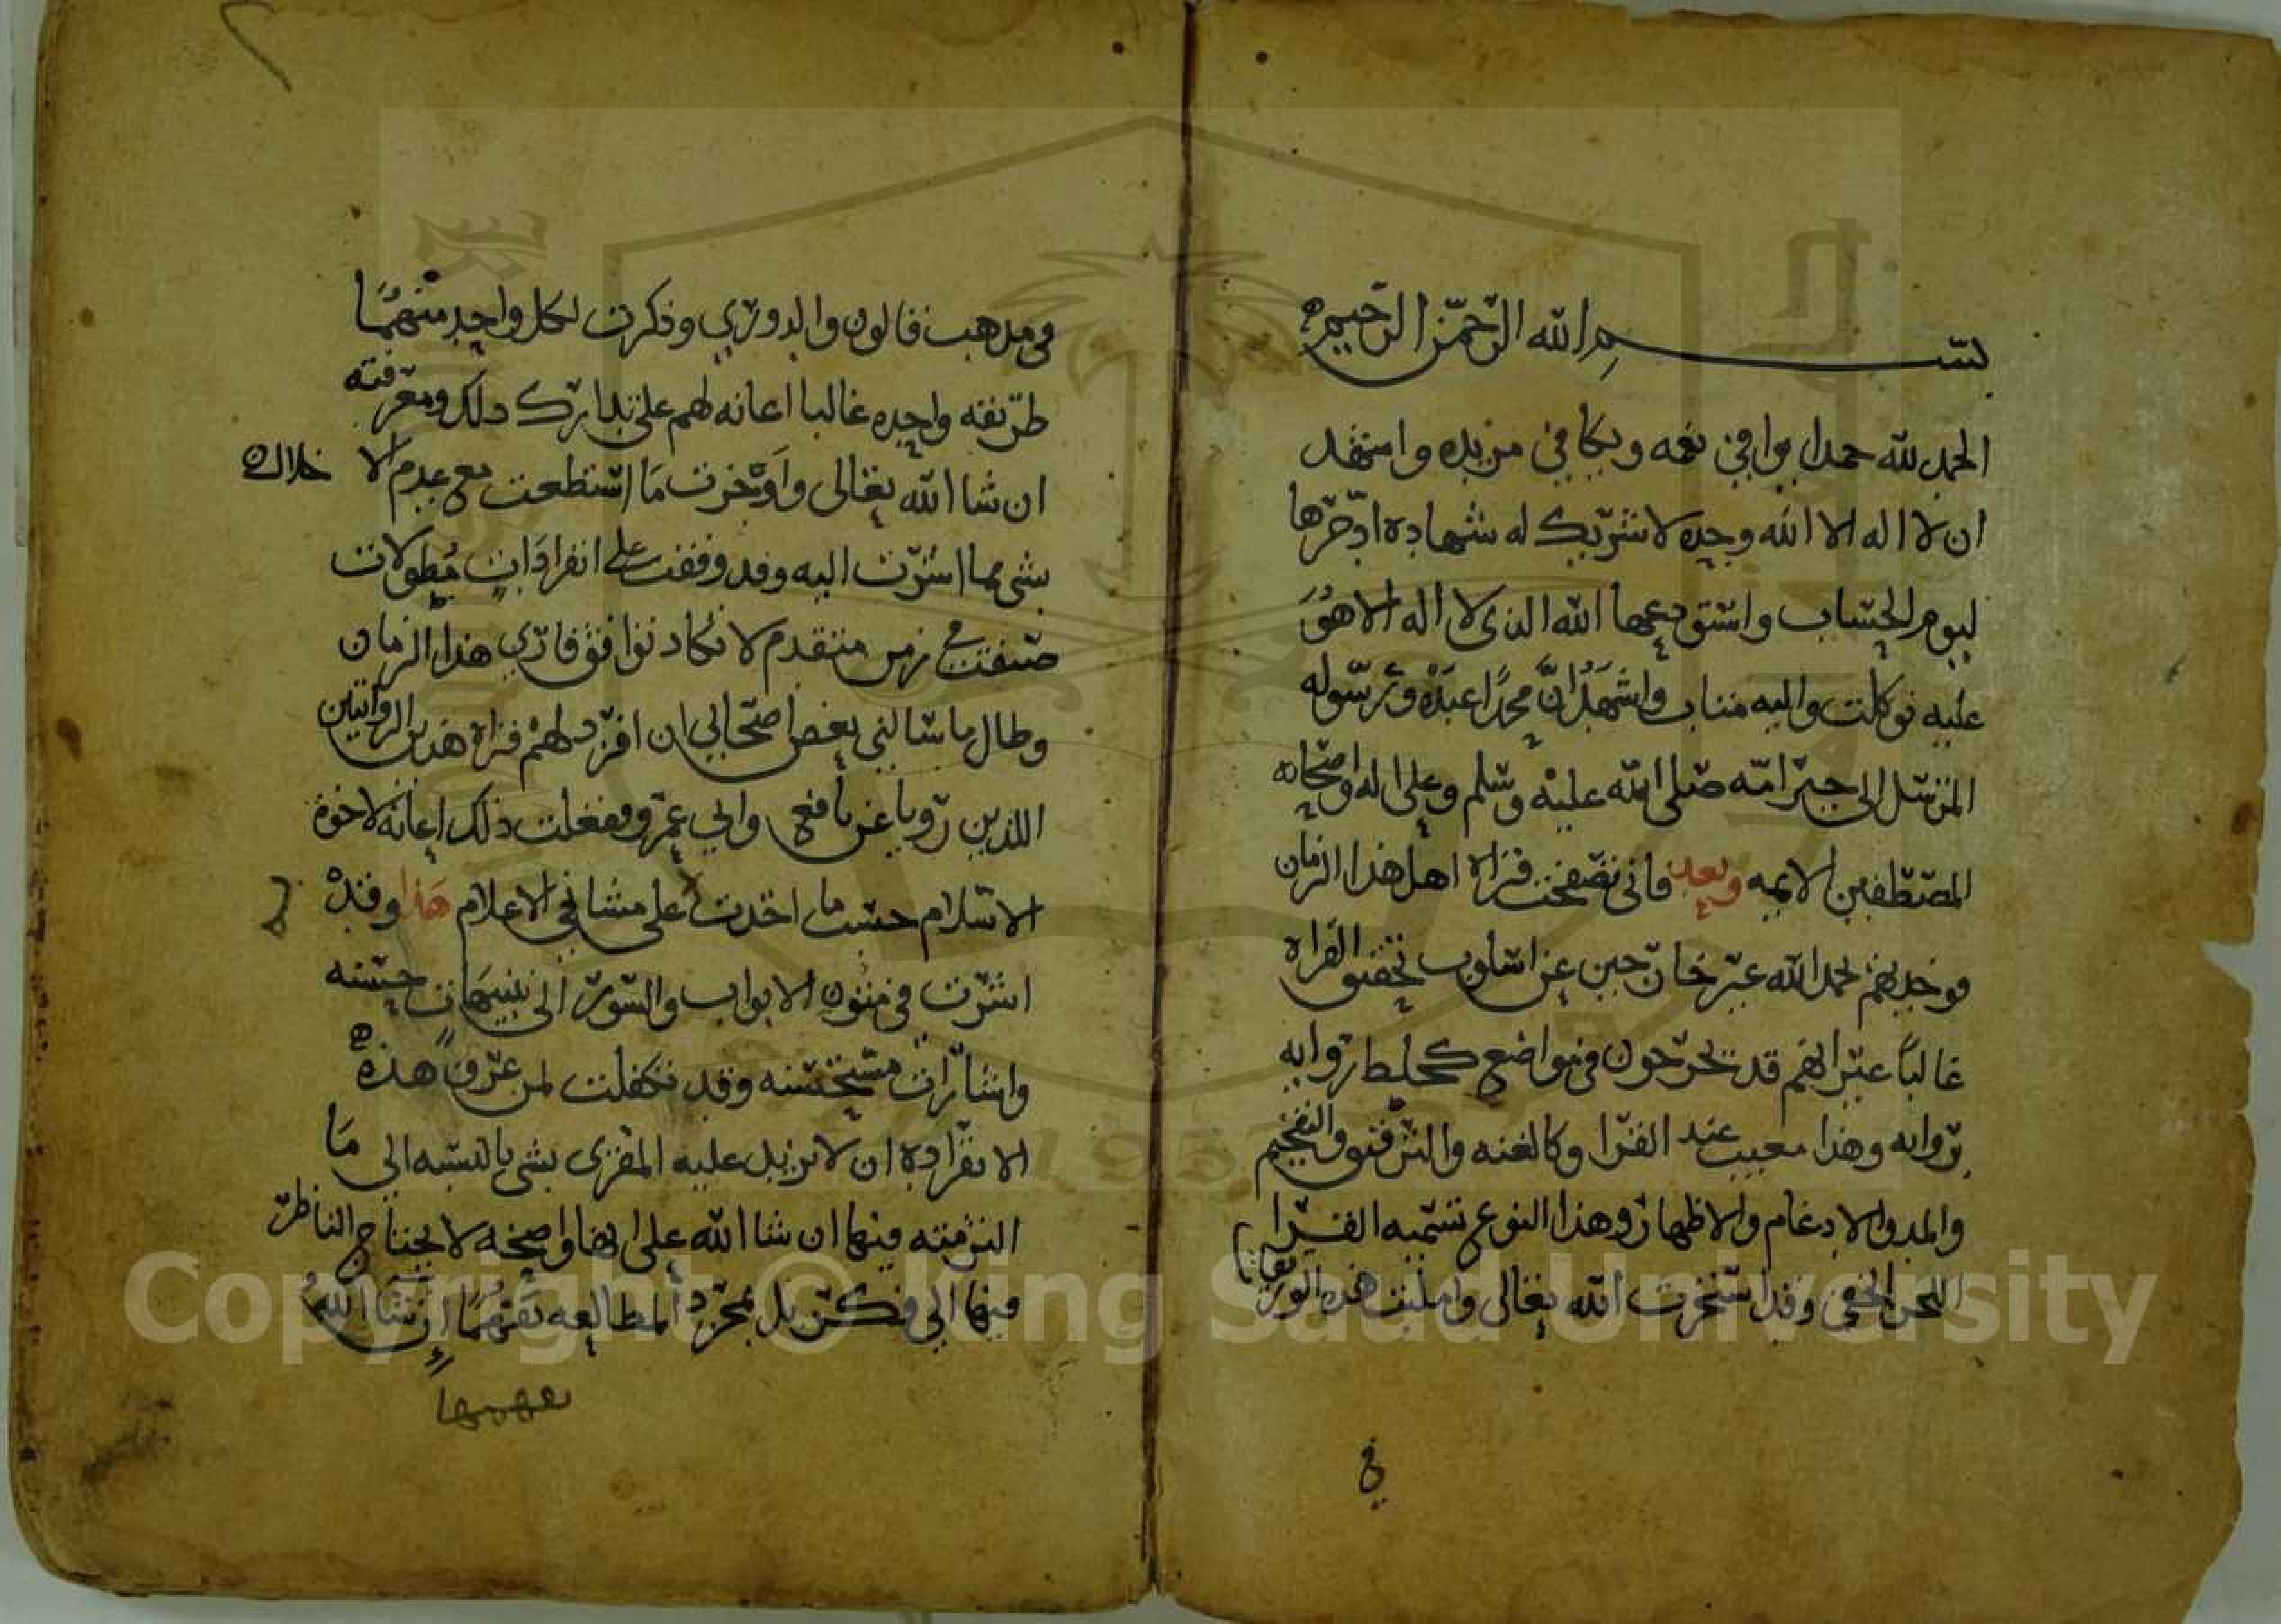 بسم الله الرحمن الرحيم
الحمد لله حمدا يوافي نعمه ويكافي مزيده واشهد
ان لا اله الا الله وحده لا شريك له شهادة ادخرها
ليوم الحساب واستودعها الله الذي لا اله الا هو
عليه توكلت واليه متاب واشهد ان محمدا عبده ورسوله
المرسل الى خير امه صلى الله عليه وسلم وعلى اله واصحابه
المصطفين الايمه وبعد فاني تصفحت قراة اهل هذا الزمان
فوجدتهم بحمد الله غير خارجين عن اسلوب تحقيق القراه
غالبا غير انهم قد يخرجون في مواضع كخلط روايه
بروايه وهذا معيب عند القرا وكالغنه والترقيق والتفخيم
والمد والادغام والاظهار وهذا النوع تسميه القرا
اللحن الخفي وقد استخرت الله تعالى وامليت هذه
في
في مذهب قالون والدوري وذكرت لكل واحد منهما
طريقه واحده غالبا اعانه لهم على تدارك ذلك ومعرفته
ان شا الله تعالى واوجزت ما استطعت مع عدم الا خلال
بشي مما اشرت اليه وقد وقفت على انفرادات مطولات
صنفت في زمن متقدم لا تكاد توافق قاري هذا الزمان
وطال ما سالني بعض اصحابي ان افرد لهم قراة هذين الراويين
اللذين رويا عن نافع وابي عمرو ففعلت ذلك اعانة لاخوة
الاسلام حسب ما اخذت على مشايخي الاعلام هذا وقد
اشرت في متون الابواب والسور الى تنبيهات حسنه
واشارات مستحسنه وقد تكفلت لمن عرف هذه
الانفرادة ان لا يزيد عليه المقري بشي بالنسبه الى ما
التزمته فيها ان شا الله على انها واضحه لا يحتاج الناظر
فيها الى فكر بل بمجرد المطالعه تفهما ان شا الله
تفهمها
Copyright © King Saud University
1957